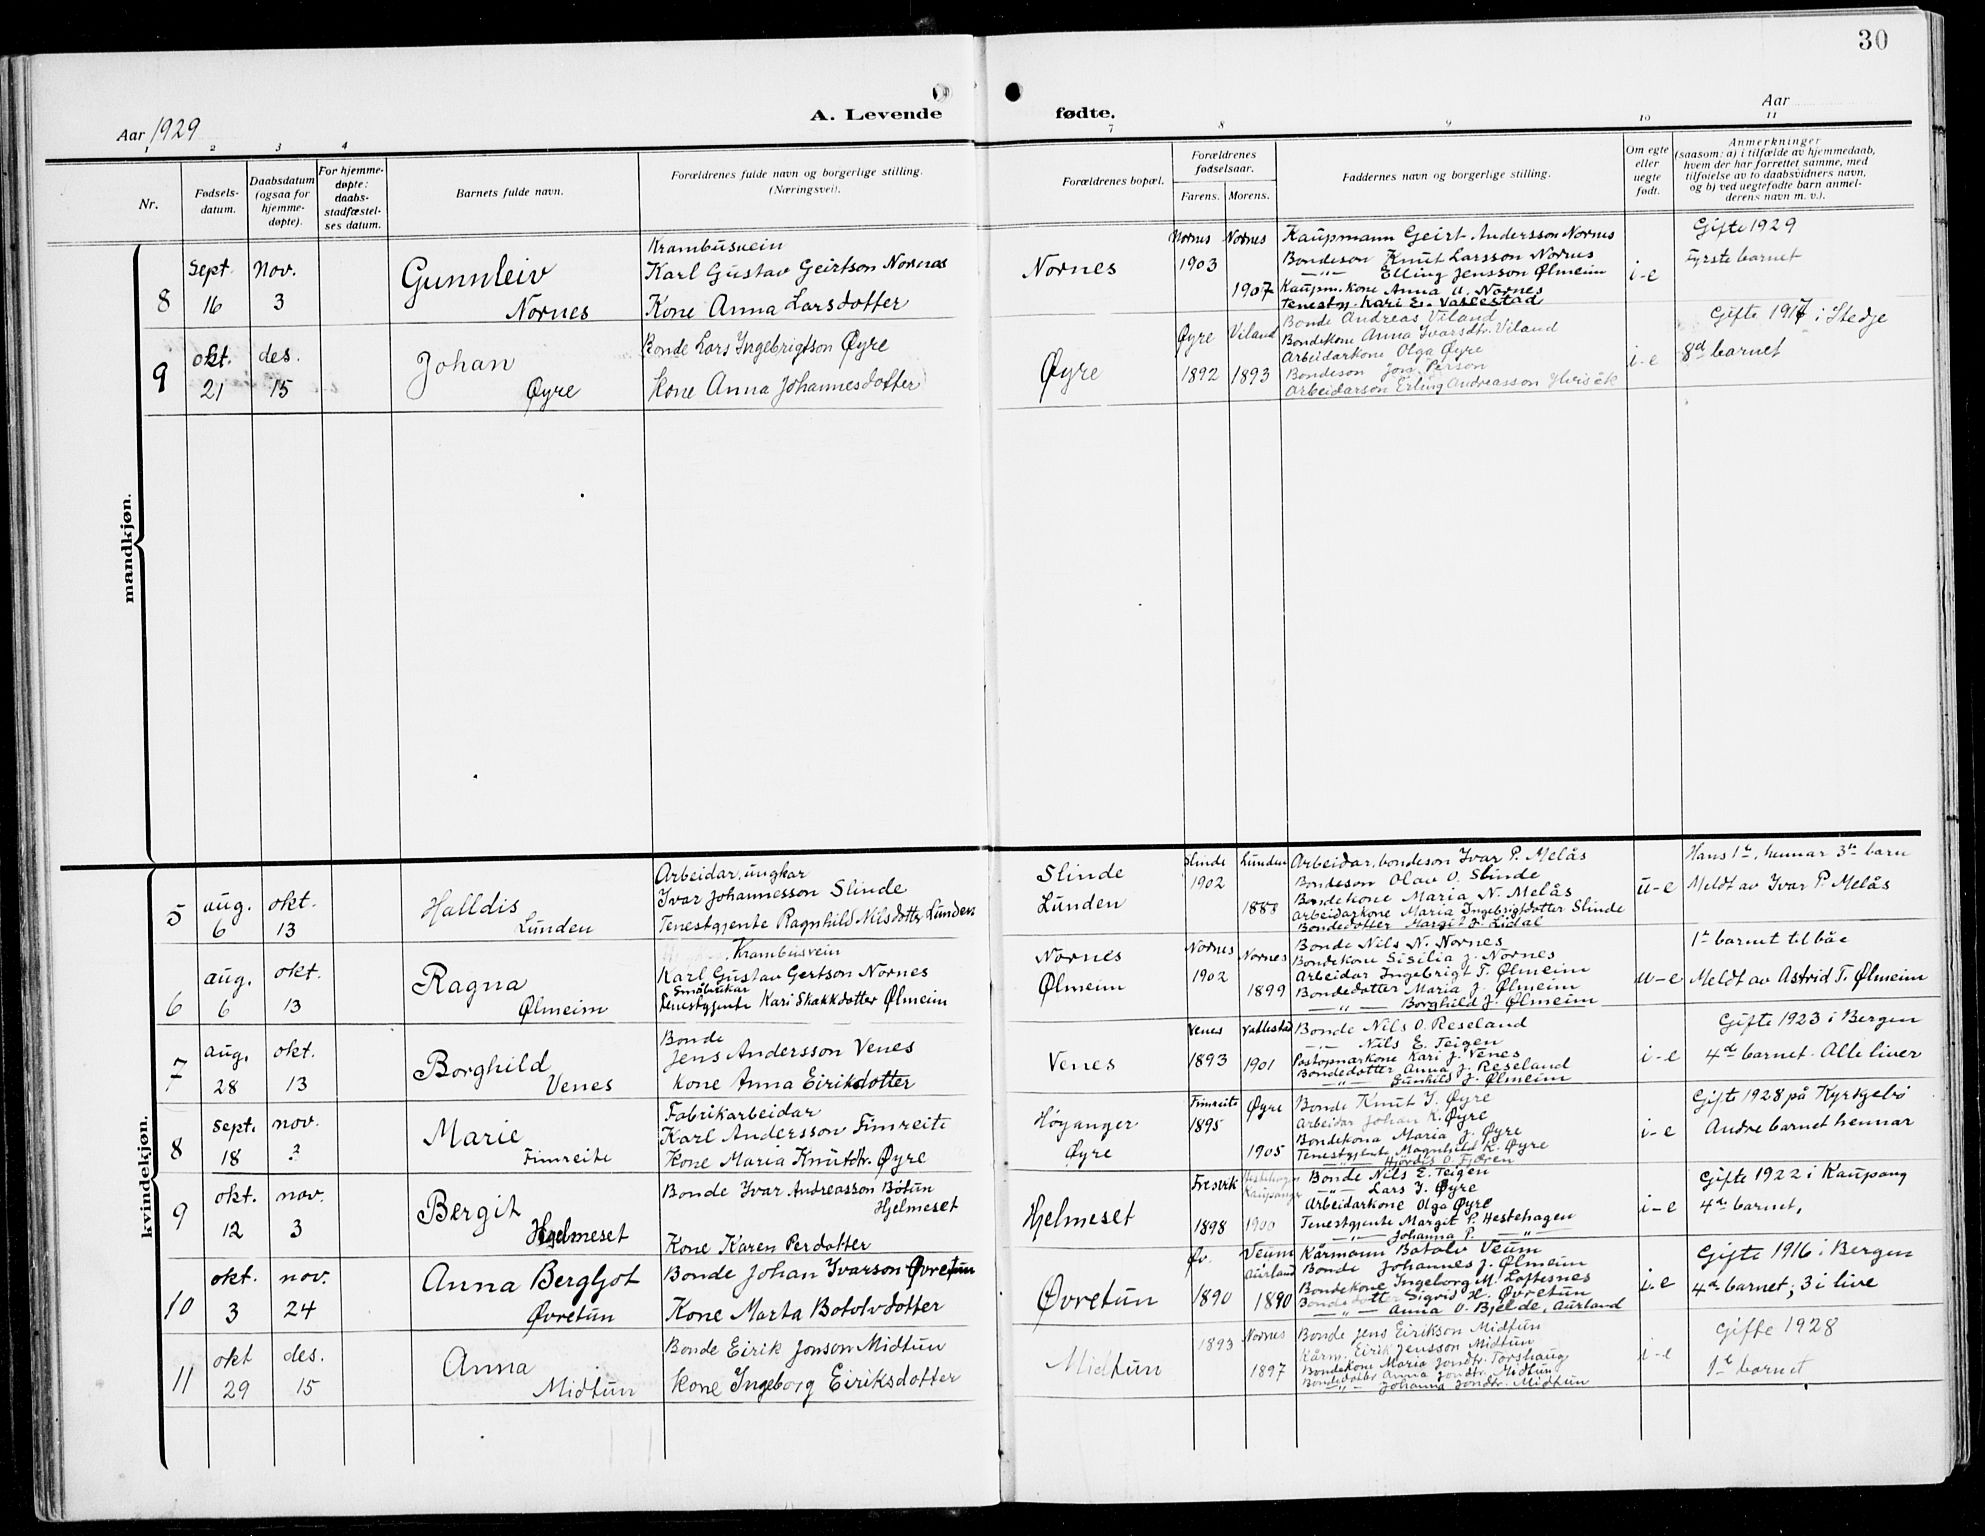 30
Aar 1929
A. Levende fødte.
Aar
1 2 3 4 7 8 9 10 11
Nr.
Fødsels-
datum.
Daabsdatum
(ogsaa for
hjemme-
døpte).
For hjemme-
døpte:
daabs-
stadfæstel-
ses datum.
Barnets fulde navn.
Forældrenes fulde navn og borgerlige stilling.
(Næringsvei).
Forældrenes bopæl.
Forældrenes
fødselsaar.
Farens. Morens.
Faddernes navn og borgerlige stilling.
Om egte
eller
uegte
født.
Anmerkninger
(saasom: a) i tilfælde av hjemmedaab,
hvem der har forrettet samme, med
tilføielse av to daabsvidners navn,
og b) ved uegtefødte barn anmel-
derens navn m. v.).
mandkjøn.
8
Sept.
16
Nov.
3
Gunnleiv
Nornes
Krambusvein
Karl Gustav Geirtson Nornes
Kone Anna Larsdotter
Nornes
Nornes
1903
Nornes
1907
Kaupmann Geirt Andersson Nornes
Bondeson Knut Larsson Nornes
—"— Elling Jensson Ølmeim
Kaupm.kone Anna O. Nornes
Tenestgj. Kari E. Vallestad
i-e
Gifte 1929
Fyrste barnet
9
okt.
21
des.
15
Johan
Øyre
Bonde Lars Ingebrigtson Øyre
Kone Anna Johannesdotter
Øyre
Øyre
1892
Viland
1893
Bonde Andreas Viland
Bondekone Anna Ivarsdtr. Viland
Arbeidarkone Olga Øyre
Bondeson Jon Person
Arbeidarson Erling Andreasson
i-e
Gifte 1917 i Stedje
8d barnet
kvindekjøn.
5
aug.
6
okt.
13
Halldis
Lunden
Arbeidar, ungkar
Ivar Johannesson Slinde
Tenestgjente Ragnhild Nilsdotter Lunden
Slinde
Lunden
Slinde
1902
Lunden
1888
Arbeidar, bondeson Ivar P. Melås
Bondeson Olav O. Slinde
Bondekone Maria N. Melås
Arbeidarkone Maria Ingebrigtdotter Slinde
Bondedotter Margit J. Lidal
u-e
Hans 1te, hennar 3de barn
Meldt av Ivar P. Melås
6
aug.
6
okt.
13
Ragna
Ølmeim
Krambusvein
Karl Gustav Gertson Nornes
Småbrukar
Tenestgjente Kari Skakkdotter Ølmeim
Nornes
Ølmeim
Nornes
1902
Nornes
1899
Bonde Nils N. Nornes
Bondekone Sisilia J. Nornes
Arbeidar Ingebrigt T. Ølmeim
Bondedotter Maria J. Ølmeim
—"— Borghild J. Ølmeim
u-e
1te barnet til båe
Meldt av Astrid T. Ølmeim
7
aug.
28
okt.
13
Borghild
Venes
Bonde
Jens Andersson Venes
Kone Anna Eiriksdotter
Venes
Venes
1893
Vallestad
1901
Bonde Nils O. Reseland
—"— Nils E. Teigen
Postopnarkone Kari J. Venes
Bondedotter Anna J. Reseland
—"— Gunhild J. Ølmeim
i-e
Gifte 1923 i Bergen
4de barnet. Alle liver
8
sept.
18
nov.
3
Marie
Fimreite
Fabrikarbeidar
Karl Andersson Fimreite
Kone Maria Knutdtr. Øyre
Høyanger
Øyre
Fimreite
1895
Øyre
1905
Bonde Knut J. Øyre
Arbeidar Johan K. Øyre
Bondekona Maria J. Øyre
Tenestgjente Magnhild K. Øyre
—"— Hjørdes O. Fjæren
i-e
Gifte 1928 på Kyrkjebø
Andre barnet hennar
9
okt.
12
nov.
3
Bergit
Hjelmeset
Bonde Ivar Andreasson Bøtun
Hjelmeset
Kone Karen Perdotter
Hjelmeset
Fresvik
1898
Hestehagen
Kaupanger
1900
Bonde Nils E. Teigen
—"— Lars J. Øyre
Arbeidarkone Olga Øyre
Tenestgjente Margit P. Hestehagen
—"— Johanna P. —"—
i-e
Gifte 1922 i Kaupang
4de barnet,
10
okt.
3
nov.
24
Anna Bergljot
Øvretun
Bonde Johan Ivarson Øvretun
Kone Marta Botolvdotter
Øvretun
Øv.
1890
Veum
Aurland
1890
Kårmann Botolv Veum
Bonde Johannes J. Ølmeim
Bondekone Ingeborg M. Loftesnes
Bondedotter Sigrid H. Øvretun
—"— Anna O. Bjelde, Aurland
i-e
Gifte 1916 i Bergen
4de barnet; 3 i live
11
okt
29
des.
15
Anna
Midtun
Bonde Eirik Jonson Midtun
Kone Ingeborg Eiriksdotter
Midtun
1893
Nornes
1897
Bonde Jens Eirikson Midtun
Kårm. Eirik Jensson Midtun
Bondekone Maria Jondtr. Torshaug
Bondedotter Anna Jondtr. Midtun
—"— Johanna Jondtr. Midtun
i-e
Gifte 1928
1te barnet